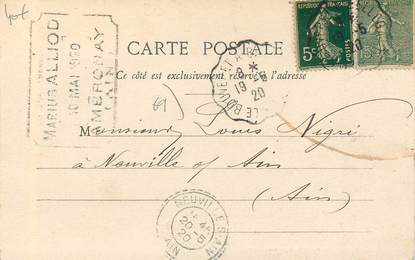 CARTE POSTALE
Ce côté est exclusivement réservé à l'adresse
MARIUS ALLIOD
19 MAI 1920
MERONAY
(AIN)
RÉPUBLIQUE FRANÇAISE
5c
POSTES
19-5
20
Monsieur Louis Nigri
à Neuville s/ Ain
(Ain)
NEUVILLE-S-AIN
20-5
20
AIN